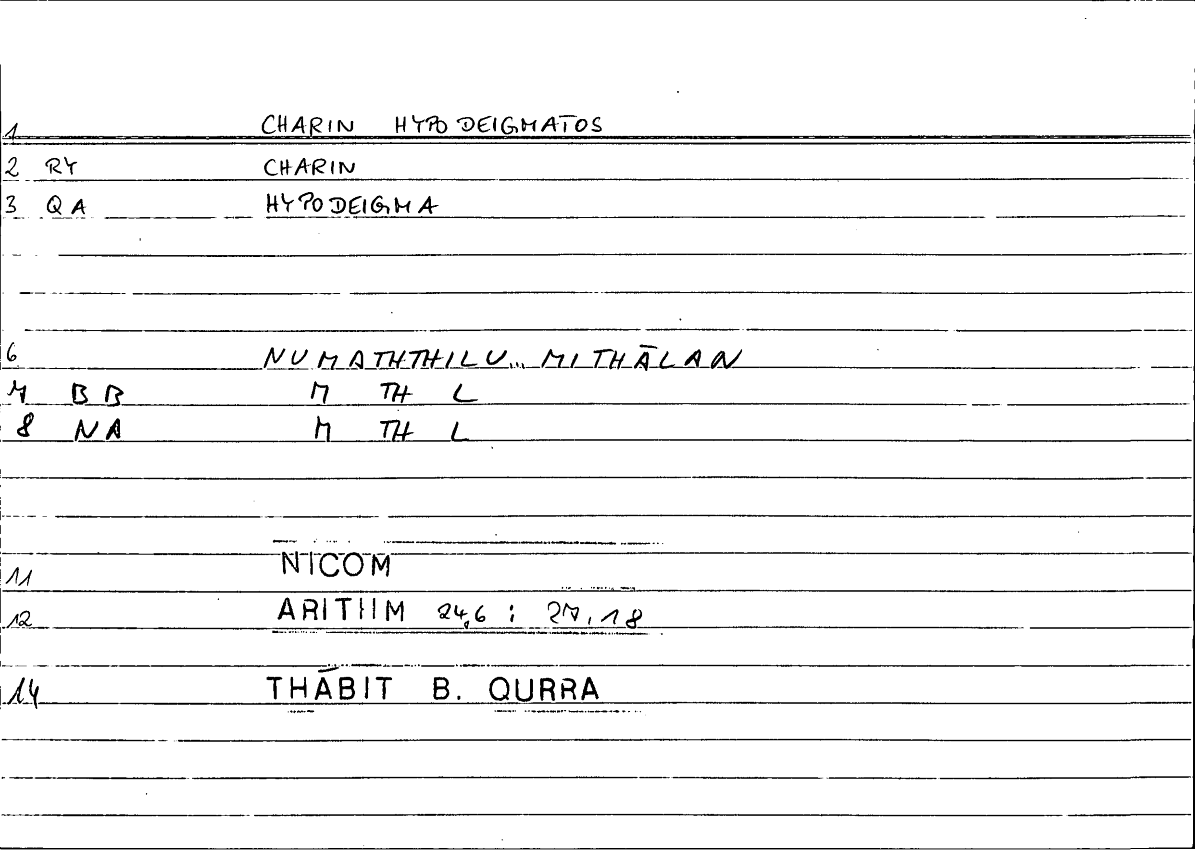 1 CHARIN HYPODEIGMATOS
2 RY CHARIN
3 QA HYPODEIGMA
6 NUMATHTHILU... MITHĀLAN
7 BB M TH L
8 NA M TH L
11 NICOM
12 ARITHM 24,6 ; 27,18
14 THĀBIT B. QURRA